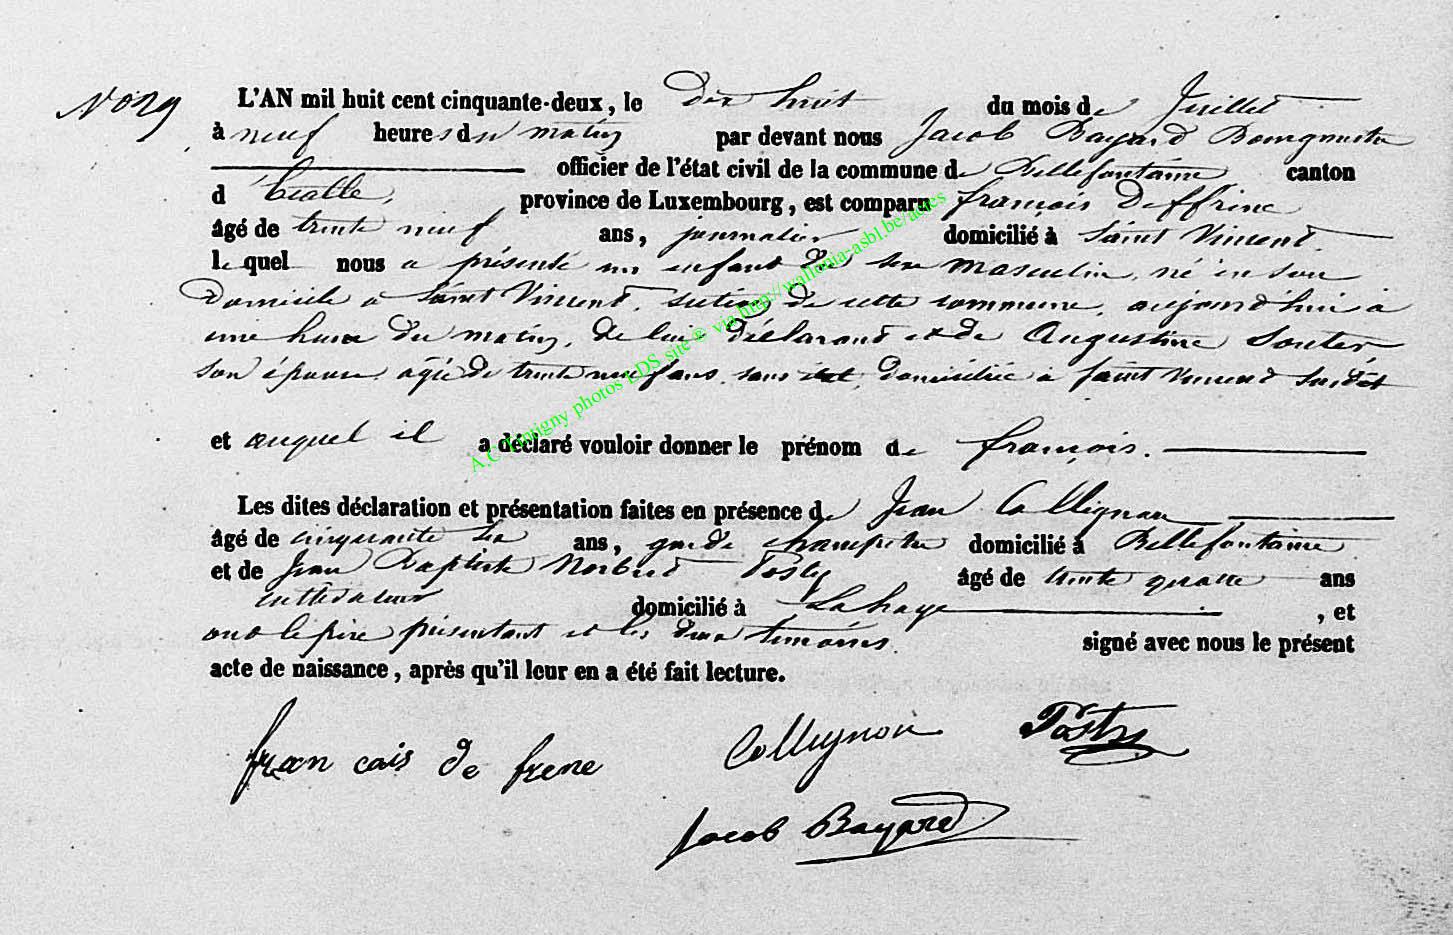 N° 29
L'AN mil huit cent cinquante-deux, le dix huit du mois de Juillet
à neuf heures du matin par devant nous Jacob Bayard Bourgmestre
officier de l'état civil de la commune de Bellefontaine canton
d'Etalle, province de Luxembourg, est comparu françois Deffrene
âgé de trente neuf ans, journalier domicilié à Saint Vincent
lequel nous a présenté un enfant de sexe masculin, né en son
Domicile à Saint Vincent, section de cette commune, aujourd'hui à
une heure du matin, de lui Déclarant et de Augustine
son épouse, agée de trente neuf ans, sans état, domiciliée à Saint Vincent susdit
et auquel il a déclaré vouloir donner le prénom de françois.
Les dites déclaration et présentation faites en présence de Jean Collignon
âgé de cinquante six ans, garde champetre domicilié à Bellefontaine
et de Jean Baptiste Norbert Posty âgé de trente quatre ans
cultivateur domicilié à Lahage, et
ont le père présentant et les deux temoins signé avec nous le présent
acte de naissance, après qu'il leur en a été fait lecture.
fran cais de frene Collignon Posty
Jacob Bayard
A.C Tintigny photos LDS site ® via http://wallonia-asbl.be/actes